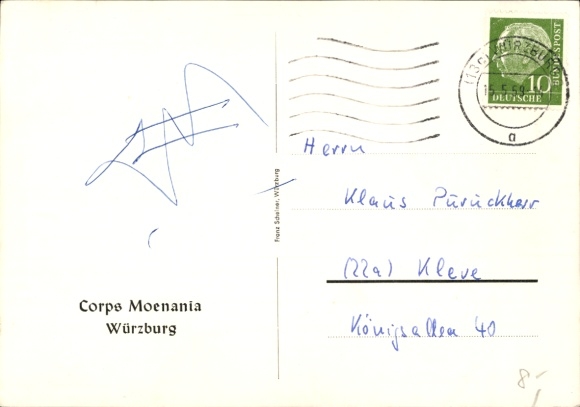 Corps Moenania
Würzburg
Franz Scheiner, Würzburg
(13a) WÜRZBURG
a
DEUTSCHE
BUNDESPOST
10
Herrn
Klaus Purückherr
(22a) Kleve
Königsallee 40
8.-